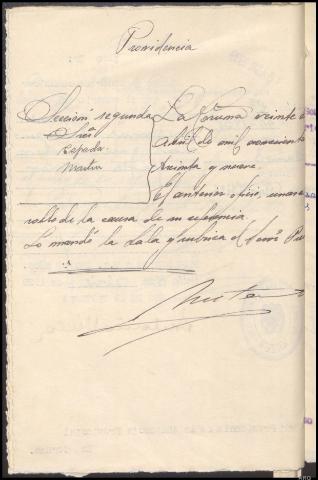 Providencia
Sección segunda
Sres
Cepeda
Martin
La Coruña veinte
Abril de mil novecientos
treinta y nueve
El anterior oficio, unase
rollo de la causa de su referencia.
Lo mandó la Sala y rubrica el Señor Pre